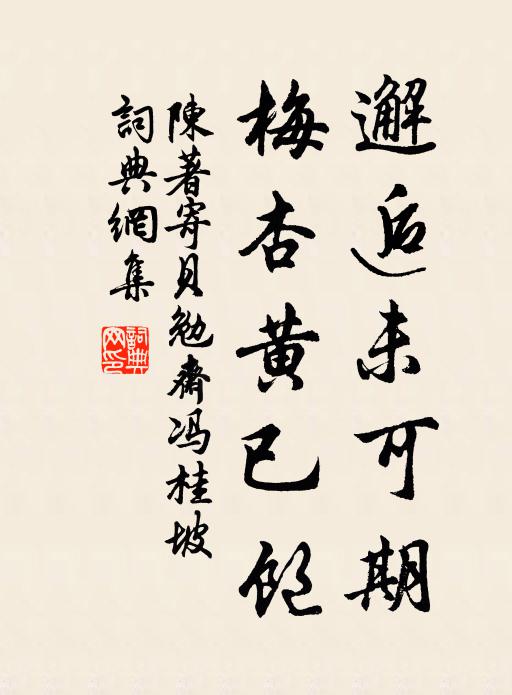 邂逅未可期
梅杏黄已飽
陳著寄貝勉齋馮桂坡
詞典網集
詞典网印